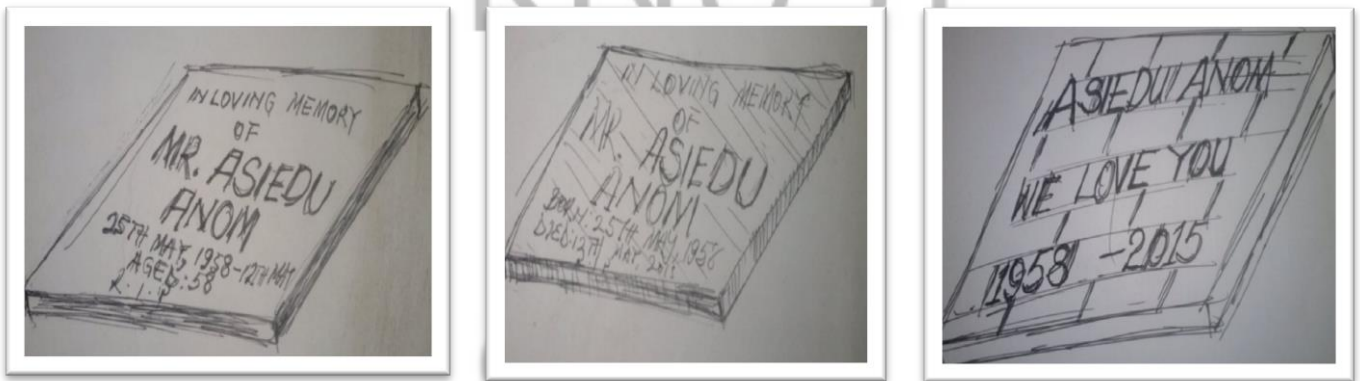 IN LOVING MEMORY
OF
MR. ASIEDU
ANOM
25TH MAY 1958-12TH MAY
AGED: 58
R.I.P
IN LOVING MEMORY
OF
MR. ASIEDU
ANOM
BORN: 25TH MAY, 1958
DIED: 12TH MAY,
ASIEDU ANOM
WE LOVE YOU
1958 - 2015